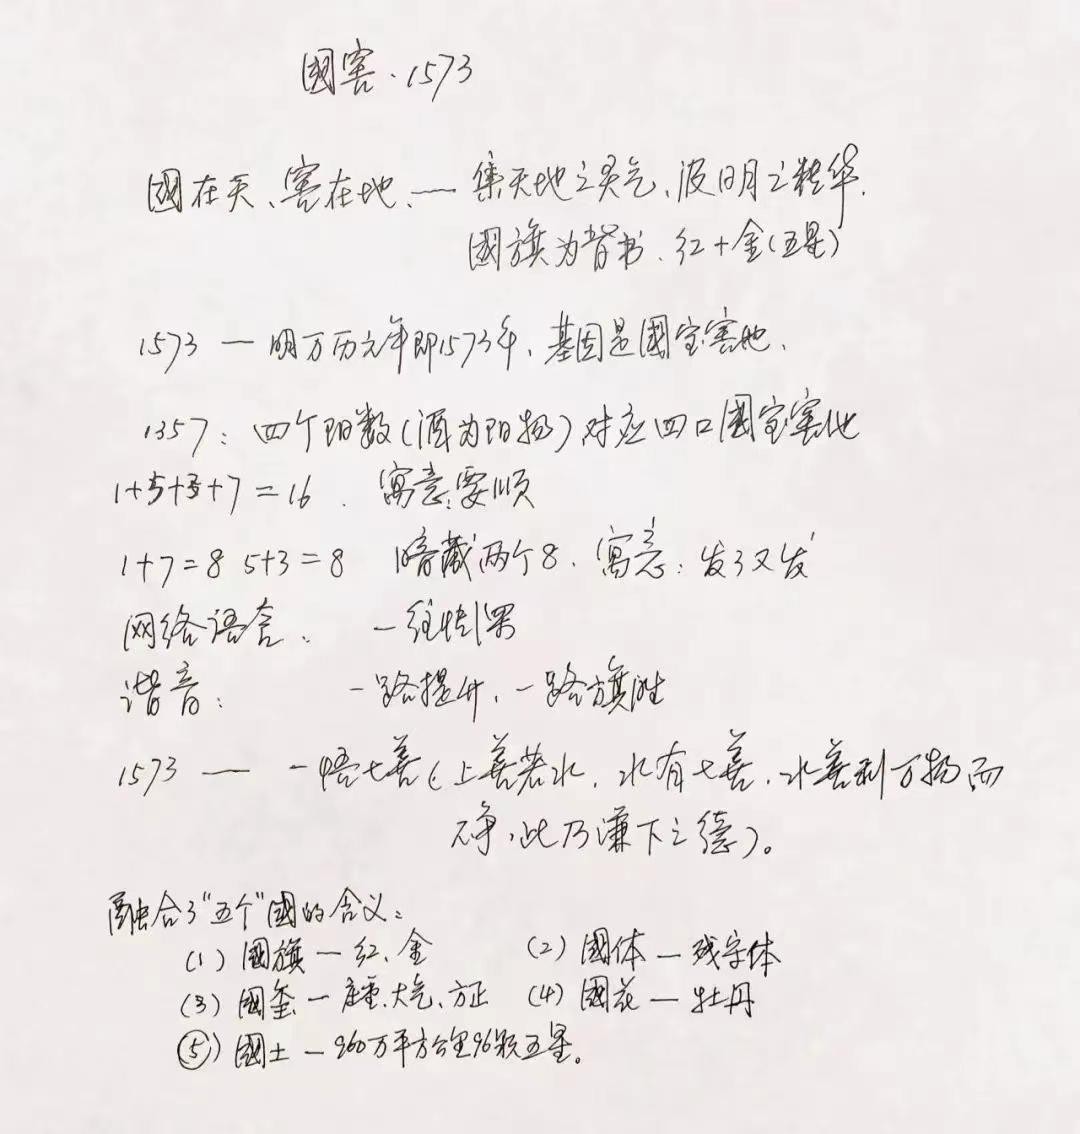 國窖·1573
國在天、窖在地、— 集天地之灵气、汲日月之精华.
國旗为背书、红+金(五星)
1573 — 明万历元年即1573年、基因是國宝窖池、
1357: 四个阳数(酒为阳物)对应四口國宝窖池
1+5+3+7=16. 寓意:要顺
1+7=8 5+3=8 暗藏两个8. 寓意: 发了又发
网络语言: 一往情深
谐音: 一路提升、一路旗胜
1573 — 一悟七善(上善若水, 水有七善, 水善利万物而
不争, 此乃谦下之德)。
融合了"五个"國的含义:
(1) 國旗 — 红、金 (2) 國体 — 残字体
(3) 國玺 — 庄重、大气、方正 (4) 國花 — 牡丹
(5) 國土 — 960万平方公里96颗五星。